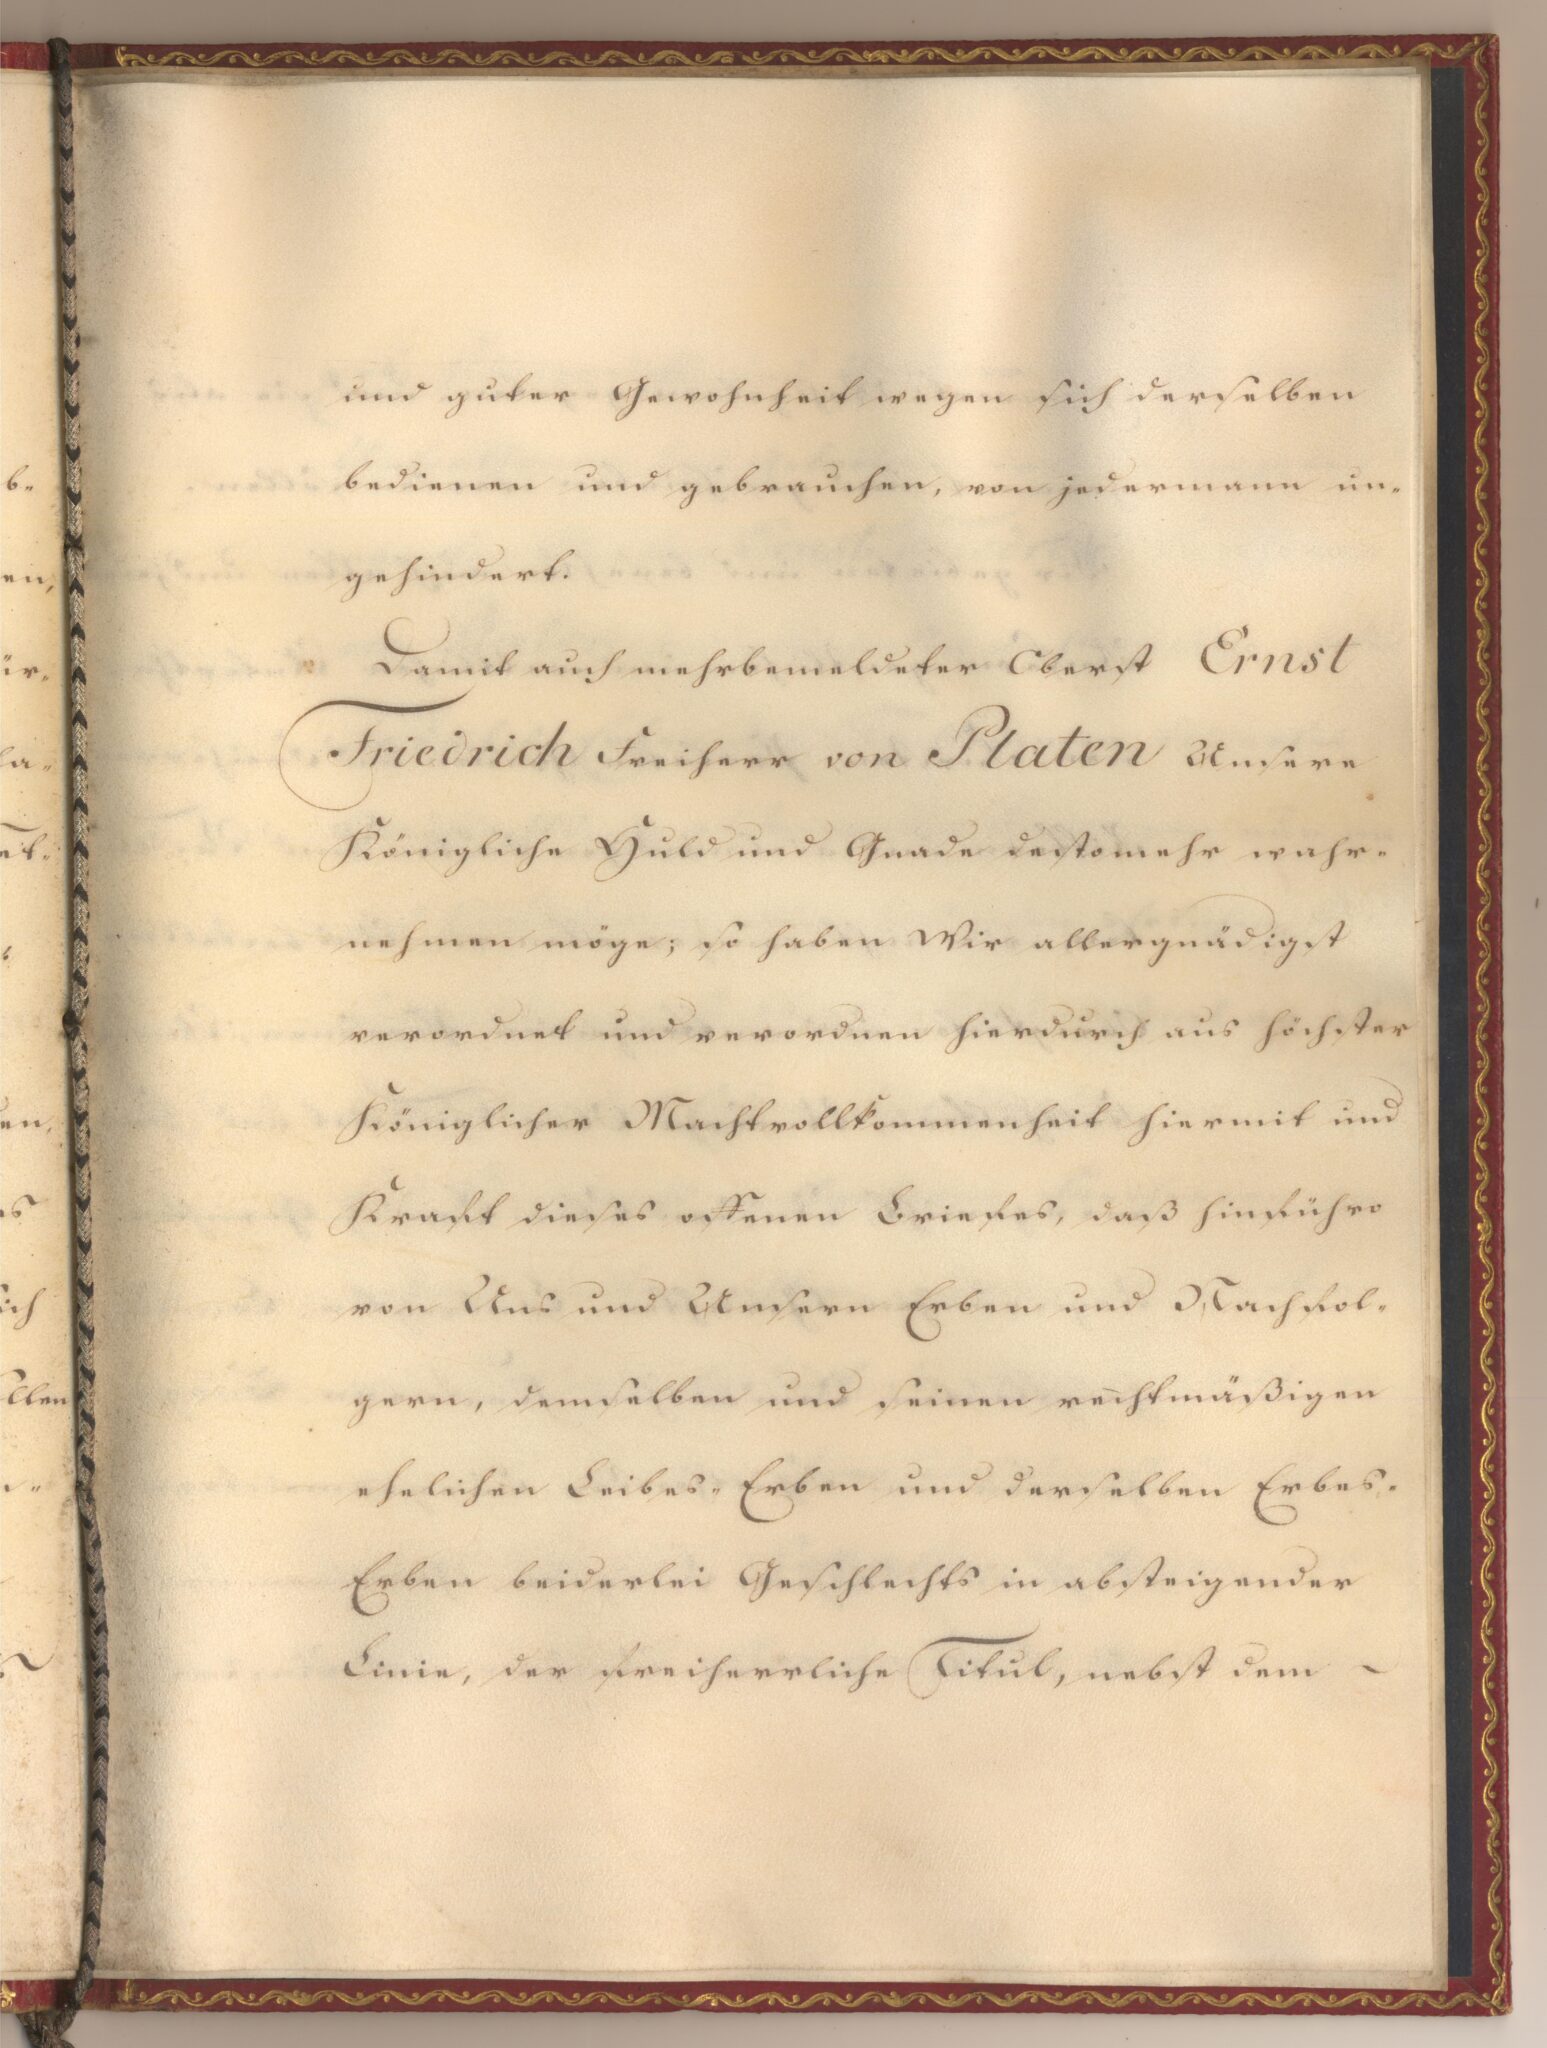 und guter Gewohnheit wegen sich derselben
bedienen und gebrauchen, von jedermann un-
gehindert.
Damit auch mehrbemeldeter Oberst Ernst
Friedrich Freiherr von Platen Unsere
Königliche Huld und Gnade destomehr wahr-
nehmen möge; so haben Wir allergnädigst
verordnet und verordnen hierdurch aus höchster
Königlicher Machtvollkommenheit hiermit und
Kraft dieses offenen Briefes, daß hinführo
von Uns und Unsern Erben und Nachfol-
gern, demselben und seinen rechtmäßigen
ehelichen Leibes-Erben und derselben Erbes-
Erben beiderlei Geschlechts in absteigender
Linie, der freiherrliche Titul, nebst dem